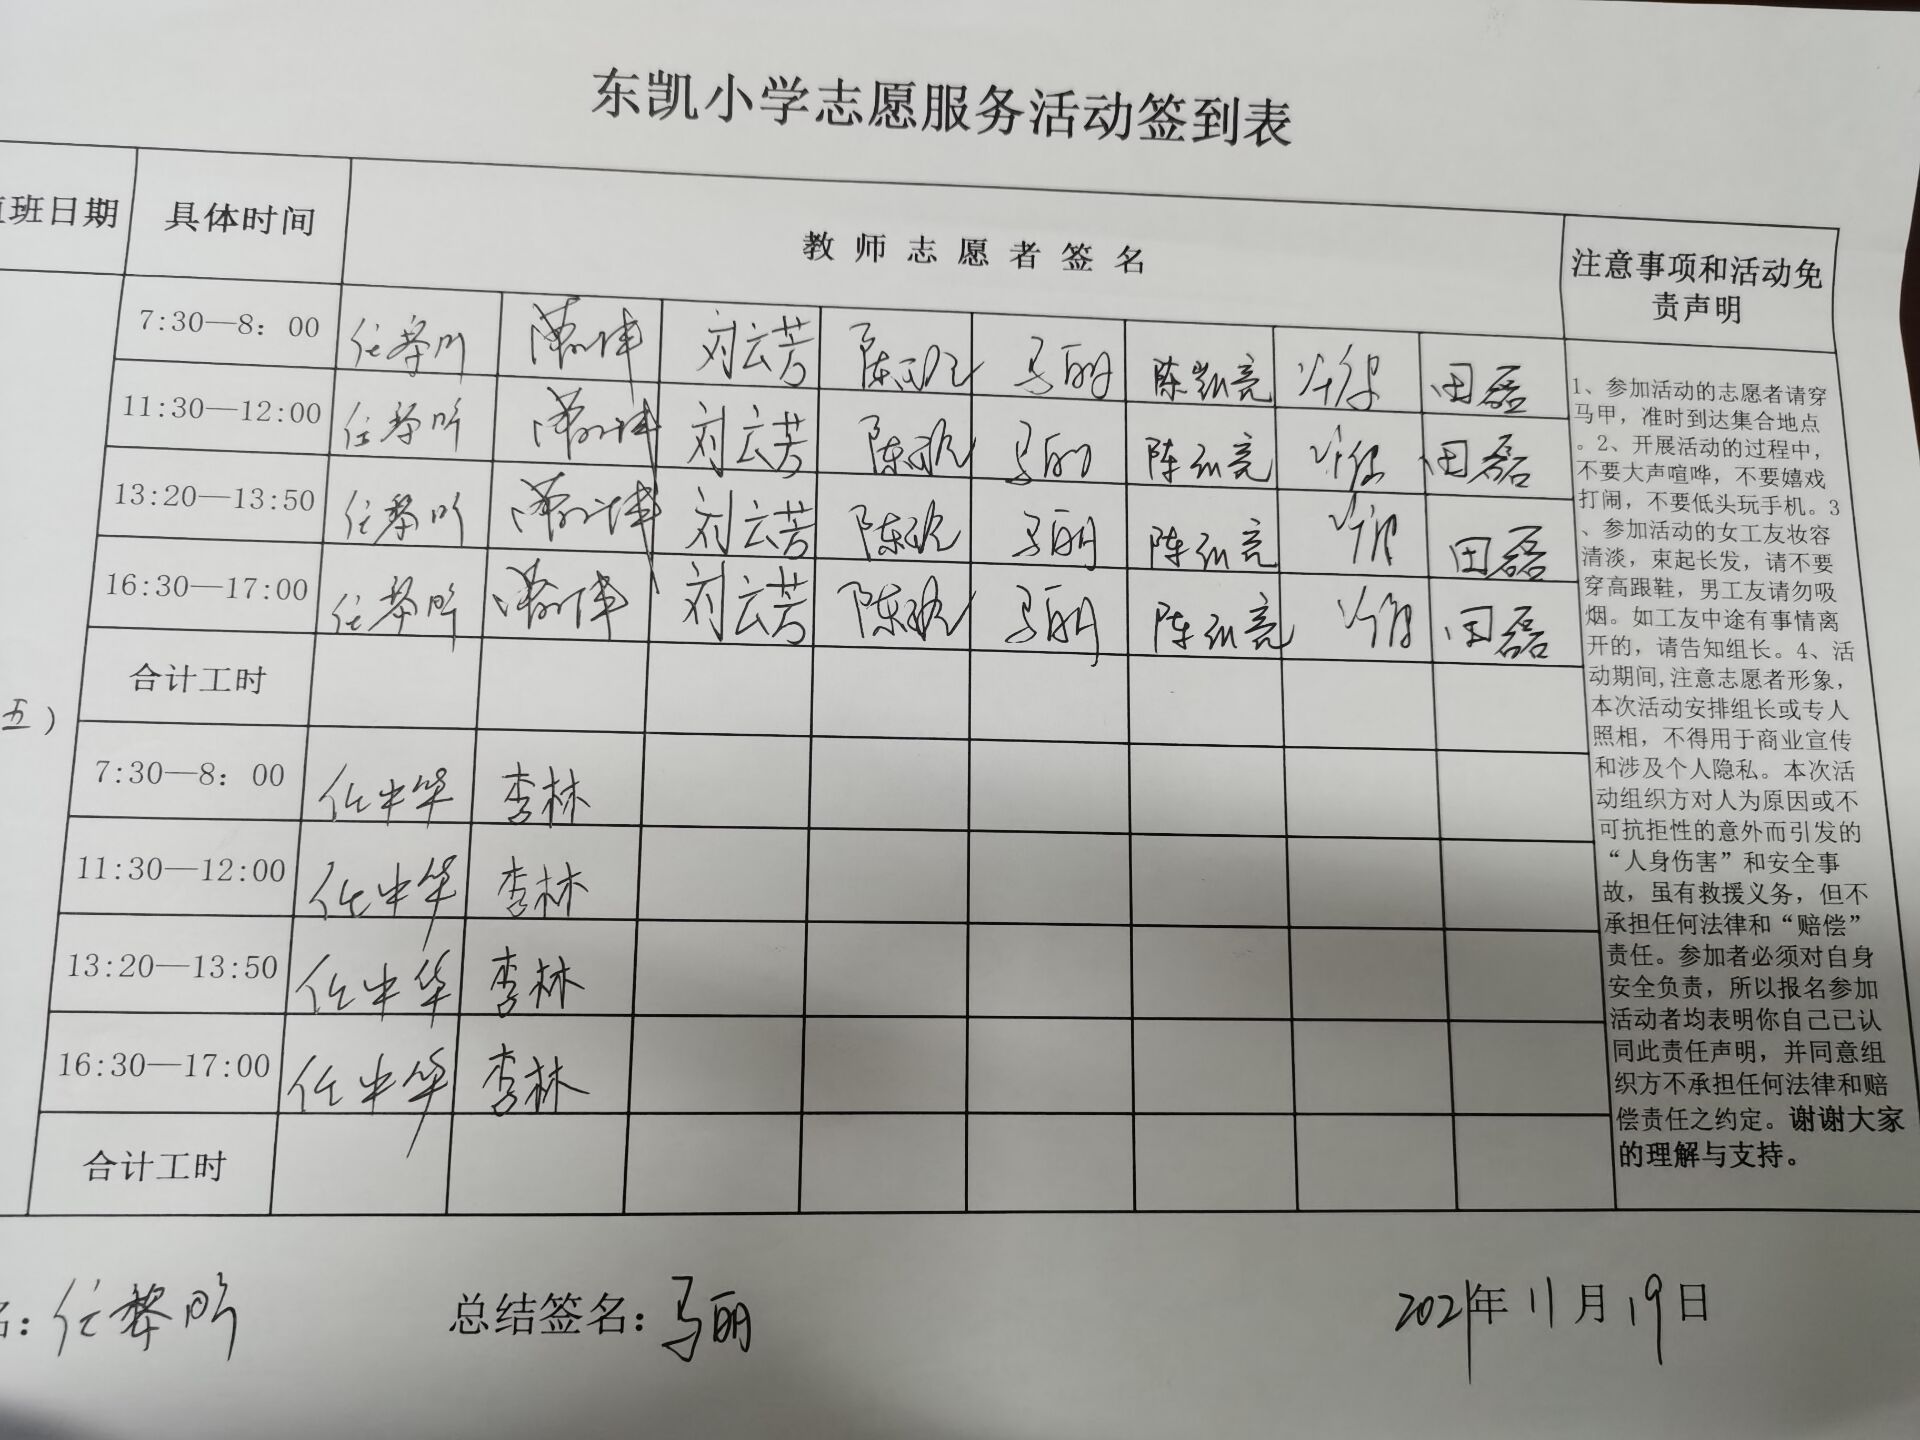 东凯小学志愿服务活动签到表
班日期 具体时间 教师志愿者签名 注意事项和活动免
责声明
7:30—8：00 刘云芳 马丽 陈凯亮 田磊
11:30—12:00 刘云芳 马丽 陈凯亮 田磊
13:20—13:50 刘云芳 马丽 陈凯亮 田磊
16:30—17:00 刘云芳 马丽 陈凯亮 田磊
合计工时
五）
7:30—8：00 任中华 李林
11:30—12:00 任中华 李林
13:20—13:50 任中华 李林
16:30—17:00 任中华 李林
合计工时
1、参加活动的志愿者请穿
马甲，准时到达集合地点
。2、开展活动的过程中，
不要大声喧哗，不要嬉戏
打闹，不要低头玩手机。3
、参加活动的女工友妆容
清淡，束起长发，请不要
穿高跟鞋，男工友请勿吸
烟。如工友中途有事情离
开的，请告知组长。4、活
动期间,注意志愿者形象，
本次活动安排组长或专人
照相，不得用于商业宣传
和涉及个人隐私。本次活
动组织方对人为原因或不
可抗拒性的意外而引发的
“人身伤害”和安全事
故，虽有救援义务，但不
承担任何法律和“赔偿”
责任。参加者必须对自身
安全负责，所以报名参加
活动者均表明你自己已认
同此责任声明，并同意组
织方不承担任何法律和赔
偿责任之约定。谢谢大家
的理解与支持。
名： 总结签名：马丽 2021年11月19日